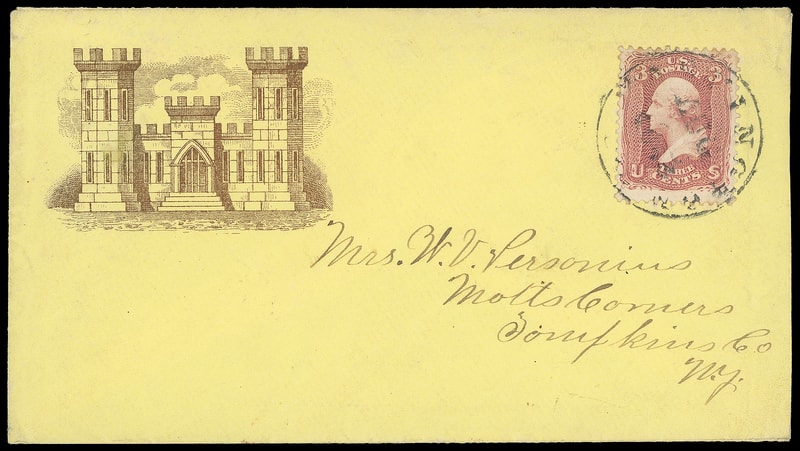 3 U.S. 3
POSTAGE
U THREE CENTS S
Mrs. W. V. Personius
Motts Corners
Tompkins Co
N.Y.